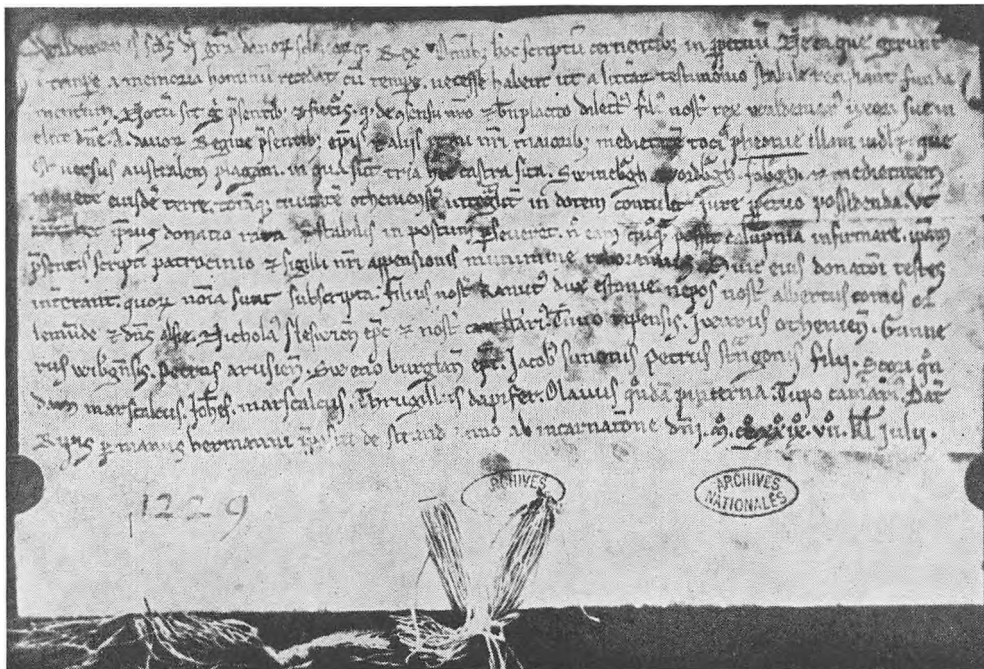 di gra danor sclauorqz Rex. Omibz hoc scriptu cernentibz in ppetuu. que gerunt
i tempe a memoria hominu recedat cu tempe. necesse habent ut a litterar testimonio stabile recipiant funda
mentum. Notu sit g psentib z futuris. q de ñsensu nro z bnplacito dilect fili nost rex waldemar uxori sue
dne. A. danor Regine psentib epis z aliis regni nri maioribz medietate toci pheonie illam uidlz que
Est uersus australem plagam. in qua sut tria hec castra sita. Swineborgh. woidborgh. foborgh. z medietatem
monete eiusde terre. totaqz ciuitate otheniense integlit in dotem contulit iure ppetuo possidenda. Ut
donatio rata z stabilis in posterum pseueret. n eam quisq possit calupnia infirmare. ipam
psentis scripti patrocinio z sigilli nri appensionis munimine roboramus. Huic eius donatioi testes
inerant. quor noia sunt subscripta. filius nost kanut dux estonie. nepos nost albertus comes or
lemude z dns alsie. Nichola sleswicen epc z nost cancellari. Tuuo ripensis. Iwarus othenien. Gunne
rus wibgensis. Petrus arusien. Sweno burglan epi. Jacob sunonis Petrus strigonis filii. Scora qn
dam marscalcus. Johes. marscalcus. Thrugillus dapifer. Olauus quda pincerna. Tupo camari. Dat
Ripis p manus hermanni ppsiti de strand anno ab incarnatione dni. m. cc. xx. ix. vii. kl Iulii.
1229
ARCHIVES
ARCHIVES
NATIONALES